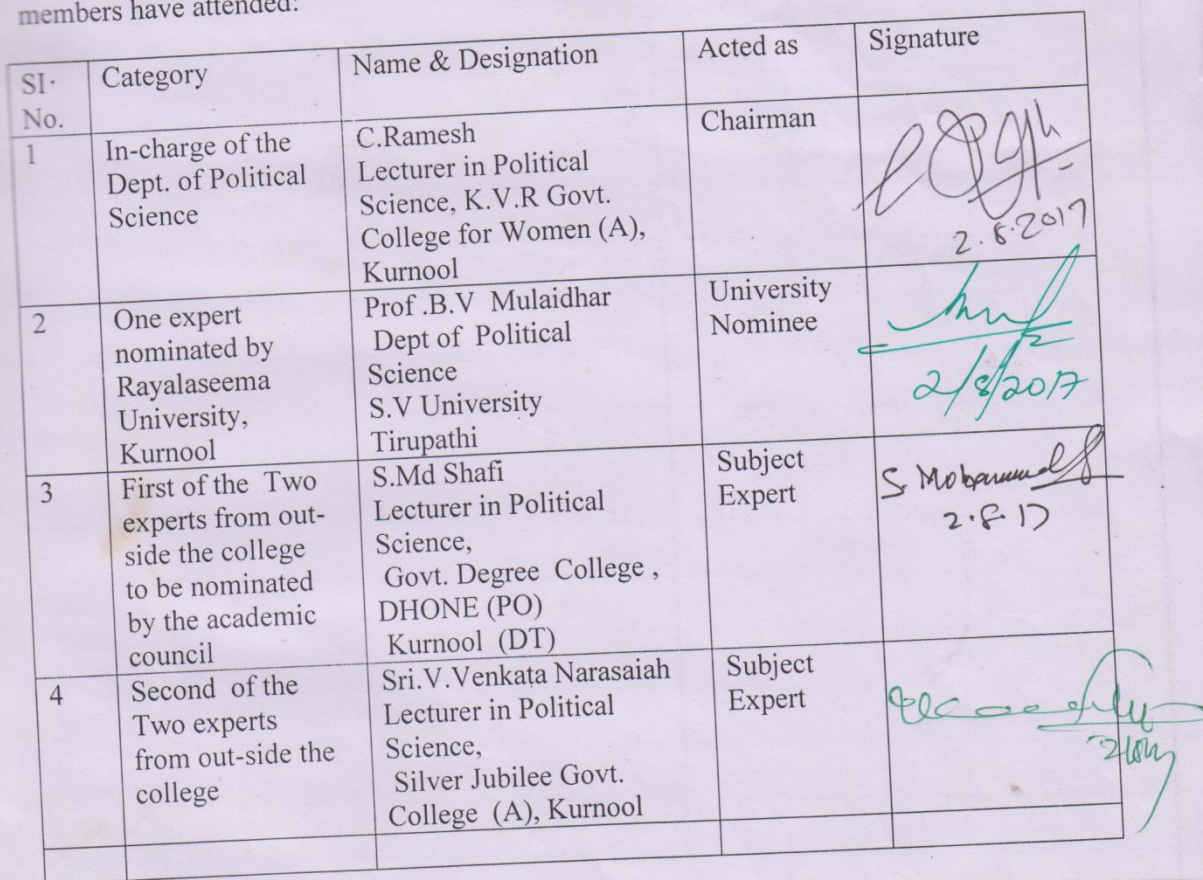 members have attended:
SI. No. Category Name & Designation Acted as Signature
1
In-charge of the
Dept. of Political
Science
C.Ramesh
Lecturer in Political
Science, K.V.R Govt.
College for Women (A),
Kurnool
Chairman
2.8.2017
2
One expert
nominated by
Rayalaseema
University,
Kurnool
Prof .B.V Mulaidhar
Dept of Political
Science
S.V University
Tirupathi
University
Nominee
2/8/2017
3
First of the Two
experts from out-
side the college
to be nominated
by the academic
council
S.Md Shafi
Lecturer in Political
Science,
Govt. Degree College ,
DHONE (PO)
Kurnool (DT)
Subject
Expert
2.8.17
4
Second of the
Two experts
from out-side the
college
Sri.V.Venkata Narasaiah
Lecturer in Political
Science,
Silver Jubilee Govt.
College (A), Kurnool
Subject
Expert